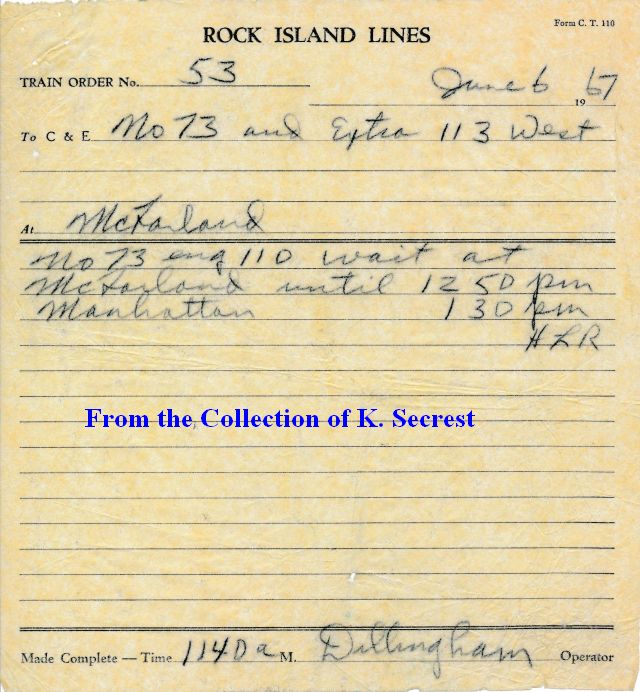 Form C. T. 110
ROCK ISLAND LINES
TRAIN ORDER No. 53
June 6 1967
To C & E No 73 and Extra 113 West
At McFarland
No 73 eng 110 wait at
McFarland until 12 50 pm
Manhattan 1 30 pm
HLR
From the Collection of K. Secrest
Made Complete — Time 1140 a M. Dillingham Operator